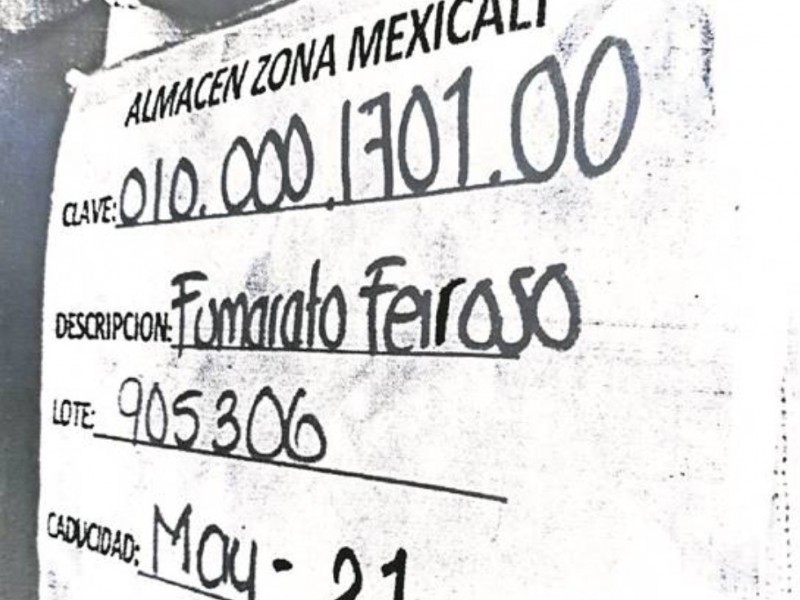 ALMACEN ZONA MEXICALI
CLAVE: 010.000.1701.00
DESCRIPCION: Fumarato Ferroso
LOTE: 905306
CADUCIDAD: May - 21